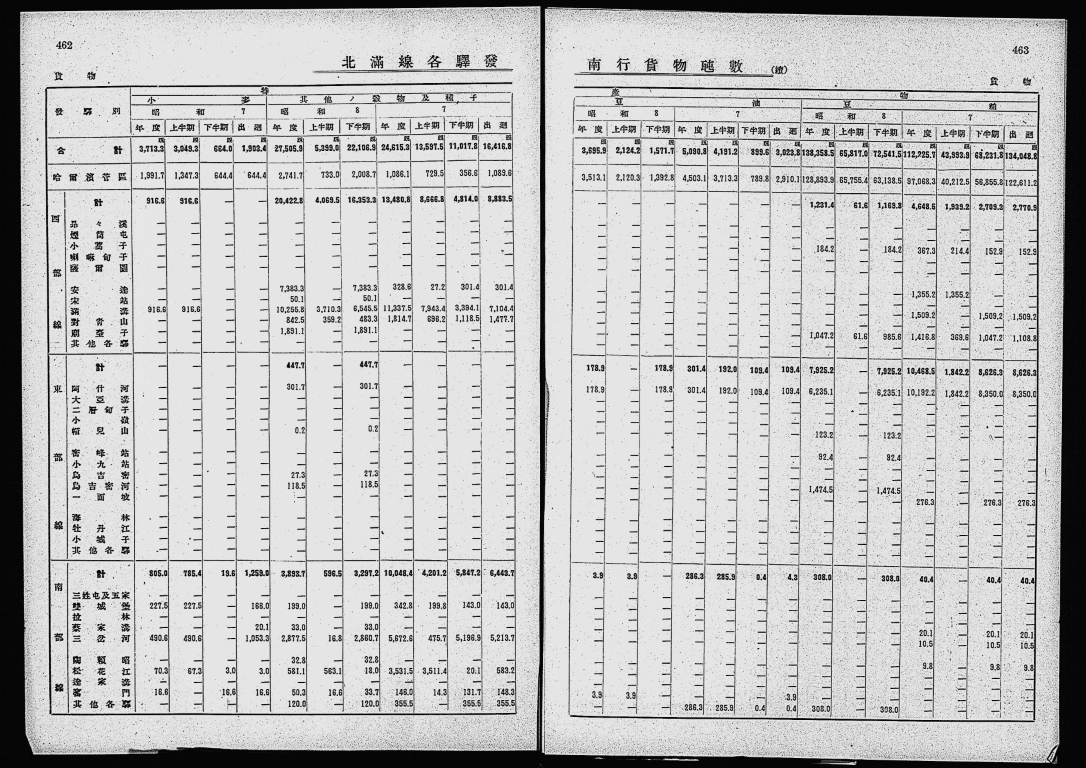 462
北滿線各驛發
貨物
特
小麥 其他ノ穀物及種子
發驛別 昭和7 昭和8 7
年度 上半期 下半期 出廻 年度 上半期 下半期 年度 上半期 下半期 出廻
合計 3,713.3 3,049.3 664.0 1,903.4 27,505.9 5,399.0 22,106.9 24,615.3 13,597.5 11,017.8 16,416.8
哈爾濱管區 1,991.7 1,347.3 644.4 644.4 2,741.7 733.0 2,008.7 1,086.1 729.5 356.6 1,089.6
西部線
計 916.6 916.6 — — 20,422.8 4,069.5 16,353.3 13,480.8 8,666.8 4,814.0 8,883.5
昂々溪 — — — — — — — — — — —
煙筒屯 — — — — — — — — — — —
小蒿子 — — — — — — — — — — —
喇嘛甸子 — — — — — — — — — — —
薩爾圖 — — — — — — — — — — —
安達 — — — — 7,383.3 — 7,383.3 328.6 27.2 301.4 301.4
宋站 — — — — 50.1 — 50.1 — — — —
滿溝 916.6 916.6 — — 10,255.8 3,710.3 6,545.5 11,337.5 7,943.4 3,394.1 7,104.4
對青山 — — — — 842.5 359.2 483.3 1,814.7 696.2 1,118.5 1,477.7
廟臺子 — — — — 1,891.1 — 1,891.1 — — — —
其他各驛 — — — — — — — — — — —
東部線
計 — — — — 447.7 — 447.7 — — — —
阿什河 — — — — 301.7 — 301.7 — — — —
大亞溝 — — — — — — — — — — —
二層甸子 — — — — — — — — — — —
小嶺 — — — — — — — — — — —
帽兒山 — — — — 0.2 — 0.2 — — — —
密峰站 — — — — — — — — — — —
小九站 — — — — — — — — — — —
烏吉密 — — — — 27.3 — 27.3 — — — —
烏吉密河 — — — — 118.5 — 118.5 — — — —
一面坡 — — — — — — — — — — —
海林 — — — — — — — — — — —
牡丹江 — — — — — — — — — — —
小城子 — — — — — — — — — — —
其他各驛 — — — — — — — — — — —
南部線
計 805.0 785.4 19.6 1,259.0 3,893.7 596.5 3,297.2 10,048.4 4,201.2 5,847.2 6,443.7
三姓屯及五家 — — — — — — — — — — —
雙城堡 227.5 227.5 — 166.0 199.0 — 199.0 342.8 199.8 143.0 143.0
拉林 — — — — — — — — — — —
蔡家溝 — — — 20.1 33.0 — 33.0 — — — —
三岔河 490.6 490.6 — 1,053.3 2,877.5 16.8 2,860.7 5,672.6 475.7 5,196.9 5,213.7
陶賴昭 — — — — 32.8 — 32.8 — — — —
松花江 70.3 67.3 3.0 3.0 581.1 563.1 18.0 3,531.5 3,511.4 20.1 583.2
達家溝 — — — — — — — — — — —
窰門 16.6 — 16.6 16.6 50.3 16.6 33.7 146.0 14.3 131.7 148.3
其他各驛 — — — — 120.0 — 120.0 355.5 — 355.5 355.5
463
南行貨物瓲數(續)
貨物
產物
豆油 豆粕
8 7 昭和8 7
年度 上半期 下半期 年度 上半期 下半期 出廻 年度 上半期 下半期 年度 上半期 下半期 出廻
3,695.9 2,124.2 1,571.7 5,090.8 4,191.2 899.6 3,023.8 138,358.5 65,817.0 72,541.5 112,225.7 43,993.9 68,231.8 134,048.8
3,513.1 2,120.3 1,392.8 4,503.1 3,713.3 789.8 2,910.1 128,893.9 65,755.4 63,138.5 97,068.3 40,212.5 56,855.8 122,611.2
— — — — — — — 1,231.4 61.6 1,169.8 4,648.5 1,939.2 2,709.3 2,770.9
184.2 — 184.2 367.3 214.4 152.9 152.9
1,355.2 1,355.2 — —
1,509.2 — 1,509.2 1,509.2
1,047.2 61.6 985.6 1,416.8 369.6 1,047.2 1,108.8
178.9 — 178.9 301.4 192.0 109.4 109.4 7,925.2 — 7,925.2 10,468.5 1,842.2 8,626.3 8,626.3
178.9 — 178.9 301.4 192.0 109.4 109.4 6,235.1 — 6,235.1 10,192.2 1,842.2 8,350.0 8,350.0
123.2 — 123.2
92.4 — 92.4
1,474.5 — 1,474.5
276.3 — 276.3 276.3
3.9 3.9 — 286.3 285.9 0.4 4.3 308.0 — 308.0 40.4 — 40.4 40.4
20.1 — 20.1 20.1
10.5 — 10.5 10.5
9.8 — 9.8 9.8
3.9 3.9 — — — — 3.9
— — — 286.3 285.9 0.4 0.4 308.0 — 308.0 — — — —